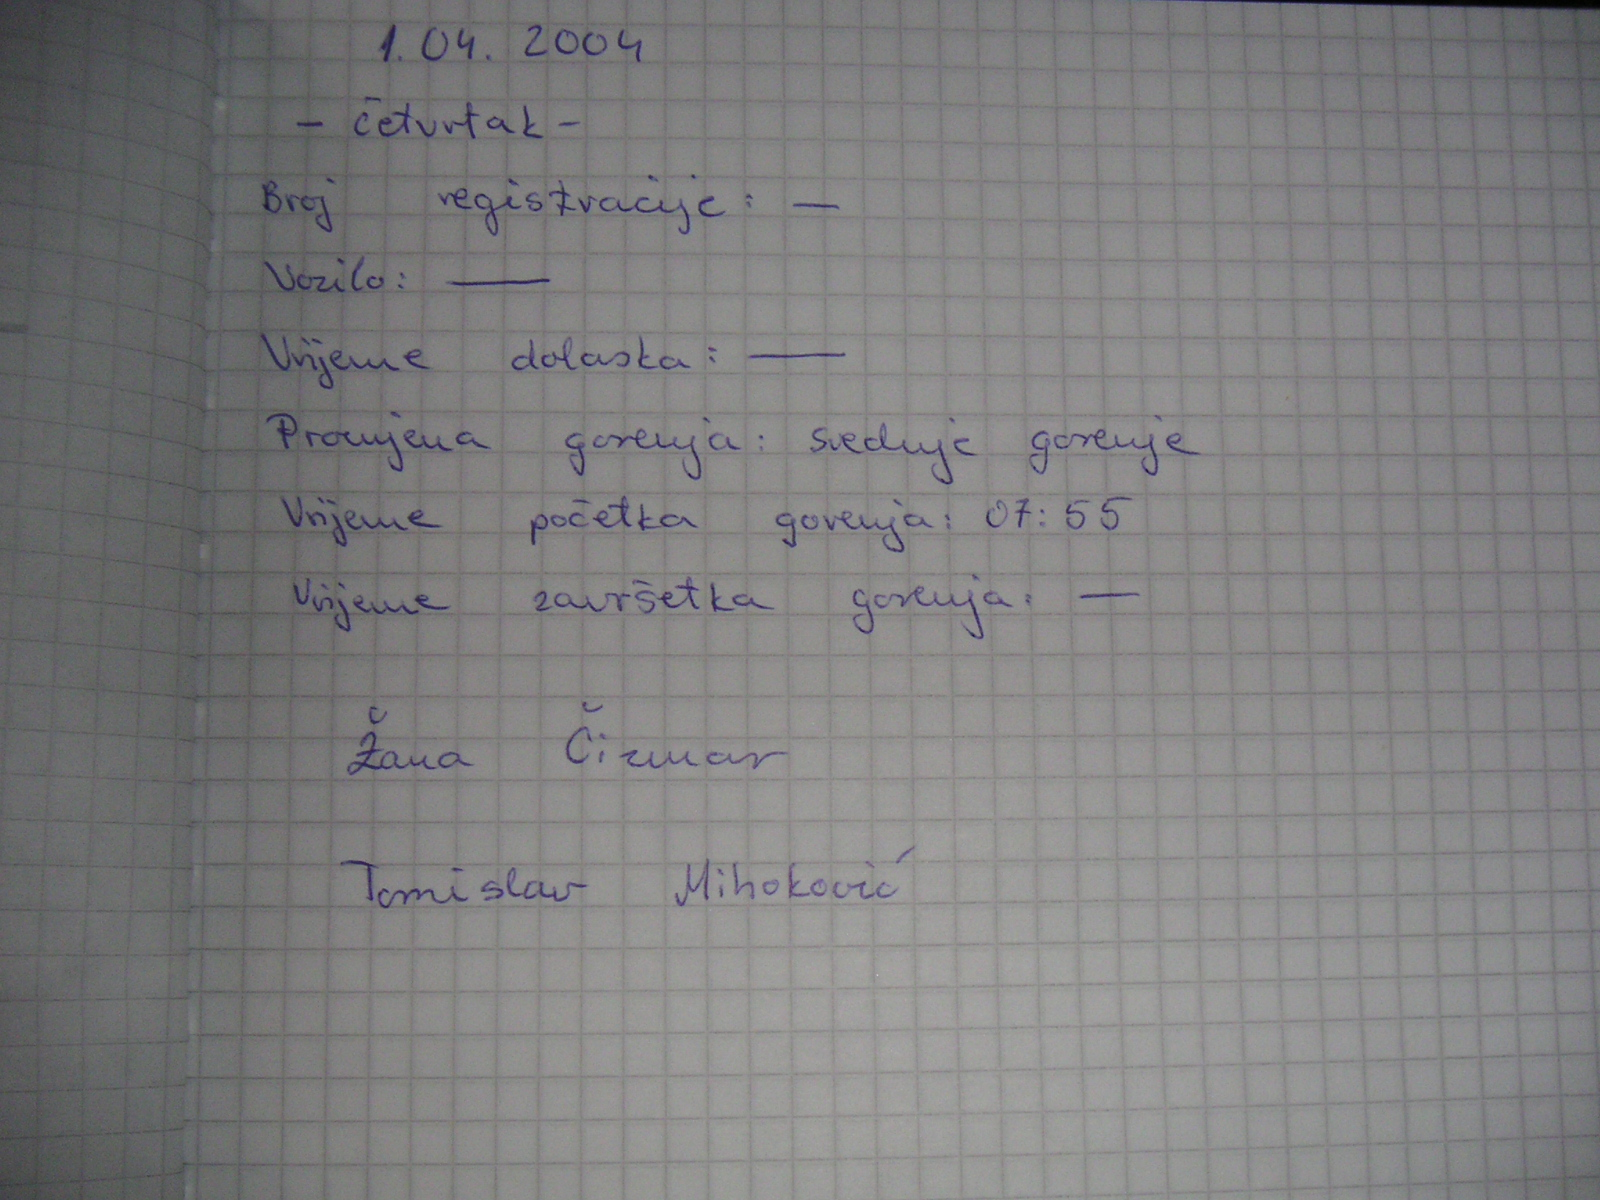 1.04. 2004
- četvrtak -
Broj registracije: —
Vozilo: —
Vrijeme dolaska: —
Promjena gorenja: srednje gorenje
Vrijeme početka gorenja: 07:55
Vrijeme završetka gorenja: —
Žana Čizmar
Tomislav Mihoković